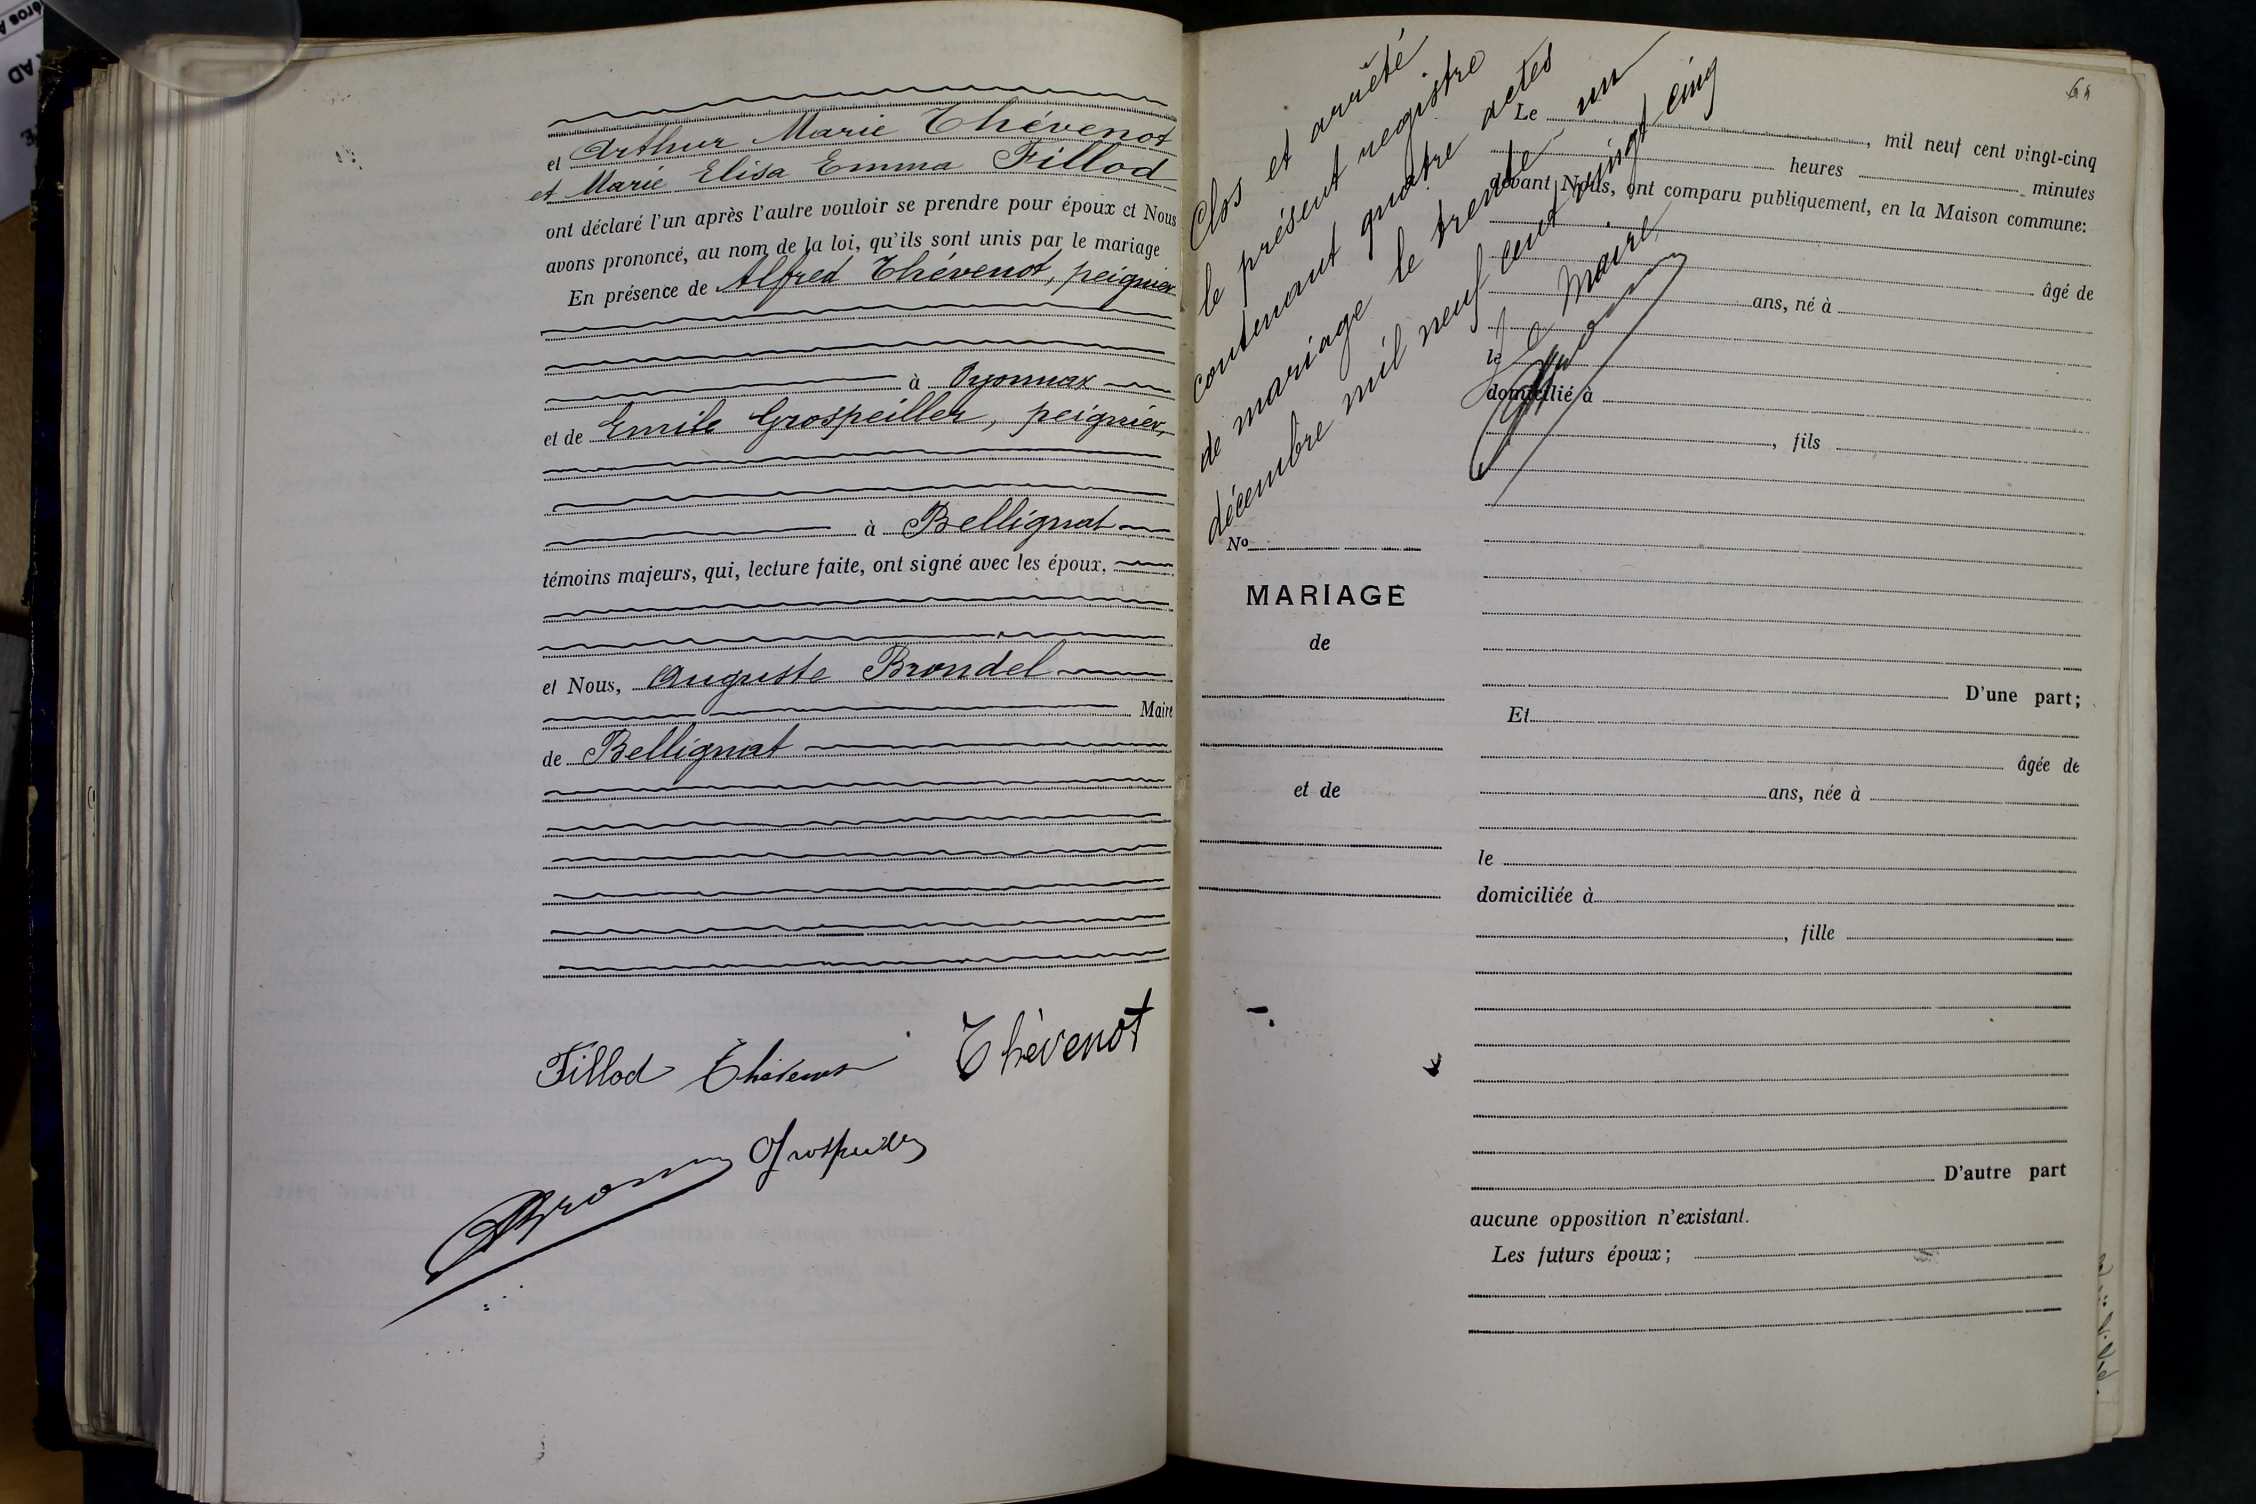 et Arthur Marie Thévenot
et Marie Elisa Emma Fillod
ont déclaré l'un après l'autre vouloir se prendre pour époux et Nous
avons prononcé, au nom de la loi, qu'ils sont unis par le mariage
En présence de Alfred Thévenot, peignier
à Oyonnax
et de Emile Grospeiller, peignier,
à Bellignat
témoins majeurs, qui, lecture faite, ont signé avec les époux,
et Nous, Auguste Brondel
Maire
de Bellignat
Fillod Thévenot Thévenot
Grospeiller
Clos et arrêté
le présent registre
contenant quatre actes
de mariage le trente un
décembre mil neuf cent vingt cinq
Le Maire,
Le , mil neuf cent vingt-cinq
heures minutes
devant Nous, ont comparu publiquement, en la Maison commune:
âgé de
ans, né à
le
domicilié à
, fils
No
MARIAGE
de
et de
D'une part;
Et
âgée de
ans, née à
le
domiciliée à
, fille
D'autre part
aucune opposition n'existant.
Les futurs époux;